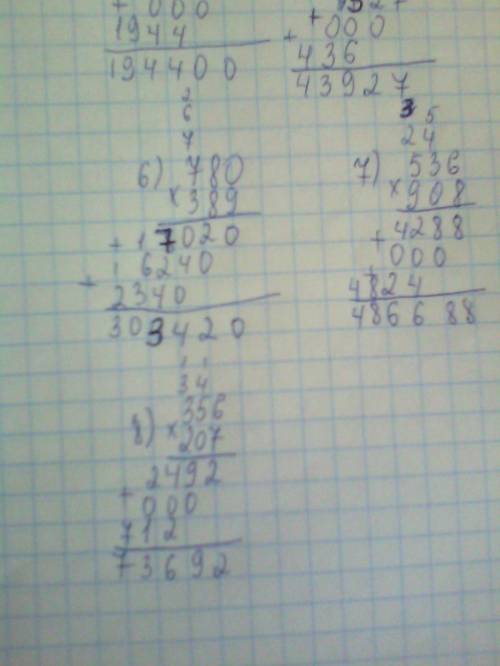 + 000
1944
194400
+ 000
+ 436
43927
2
6
7
6) 780
× 389
+ 17020
+ 6240
2340
303420
3 5
2 4
7) 536
× 908
4288
+ 000
+ 4824
486688
1 1
3 4
8) × 356
207
2492
+ 000
712
73692